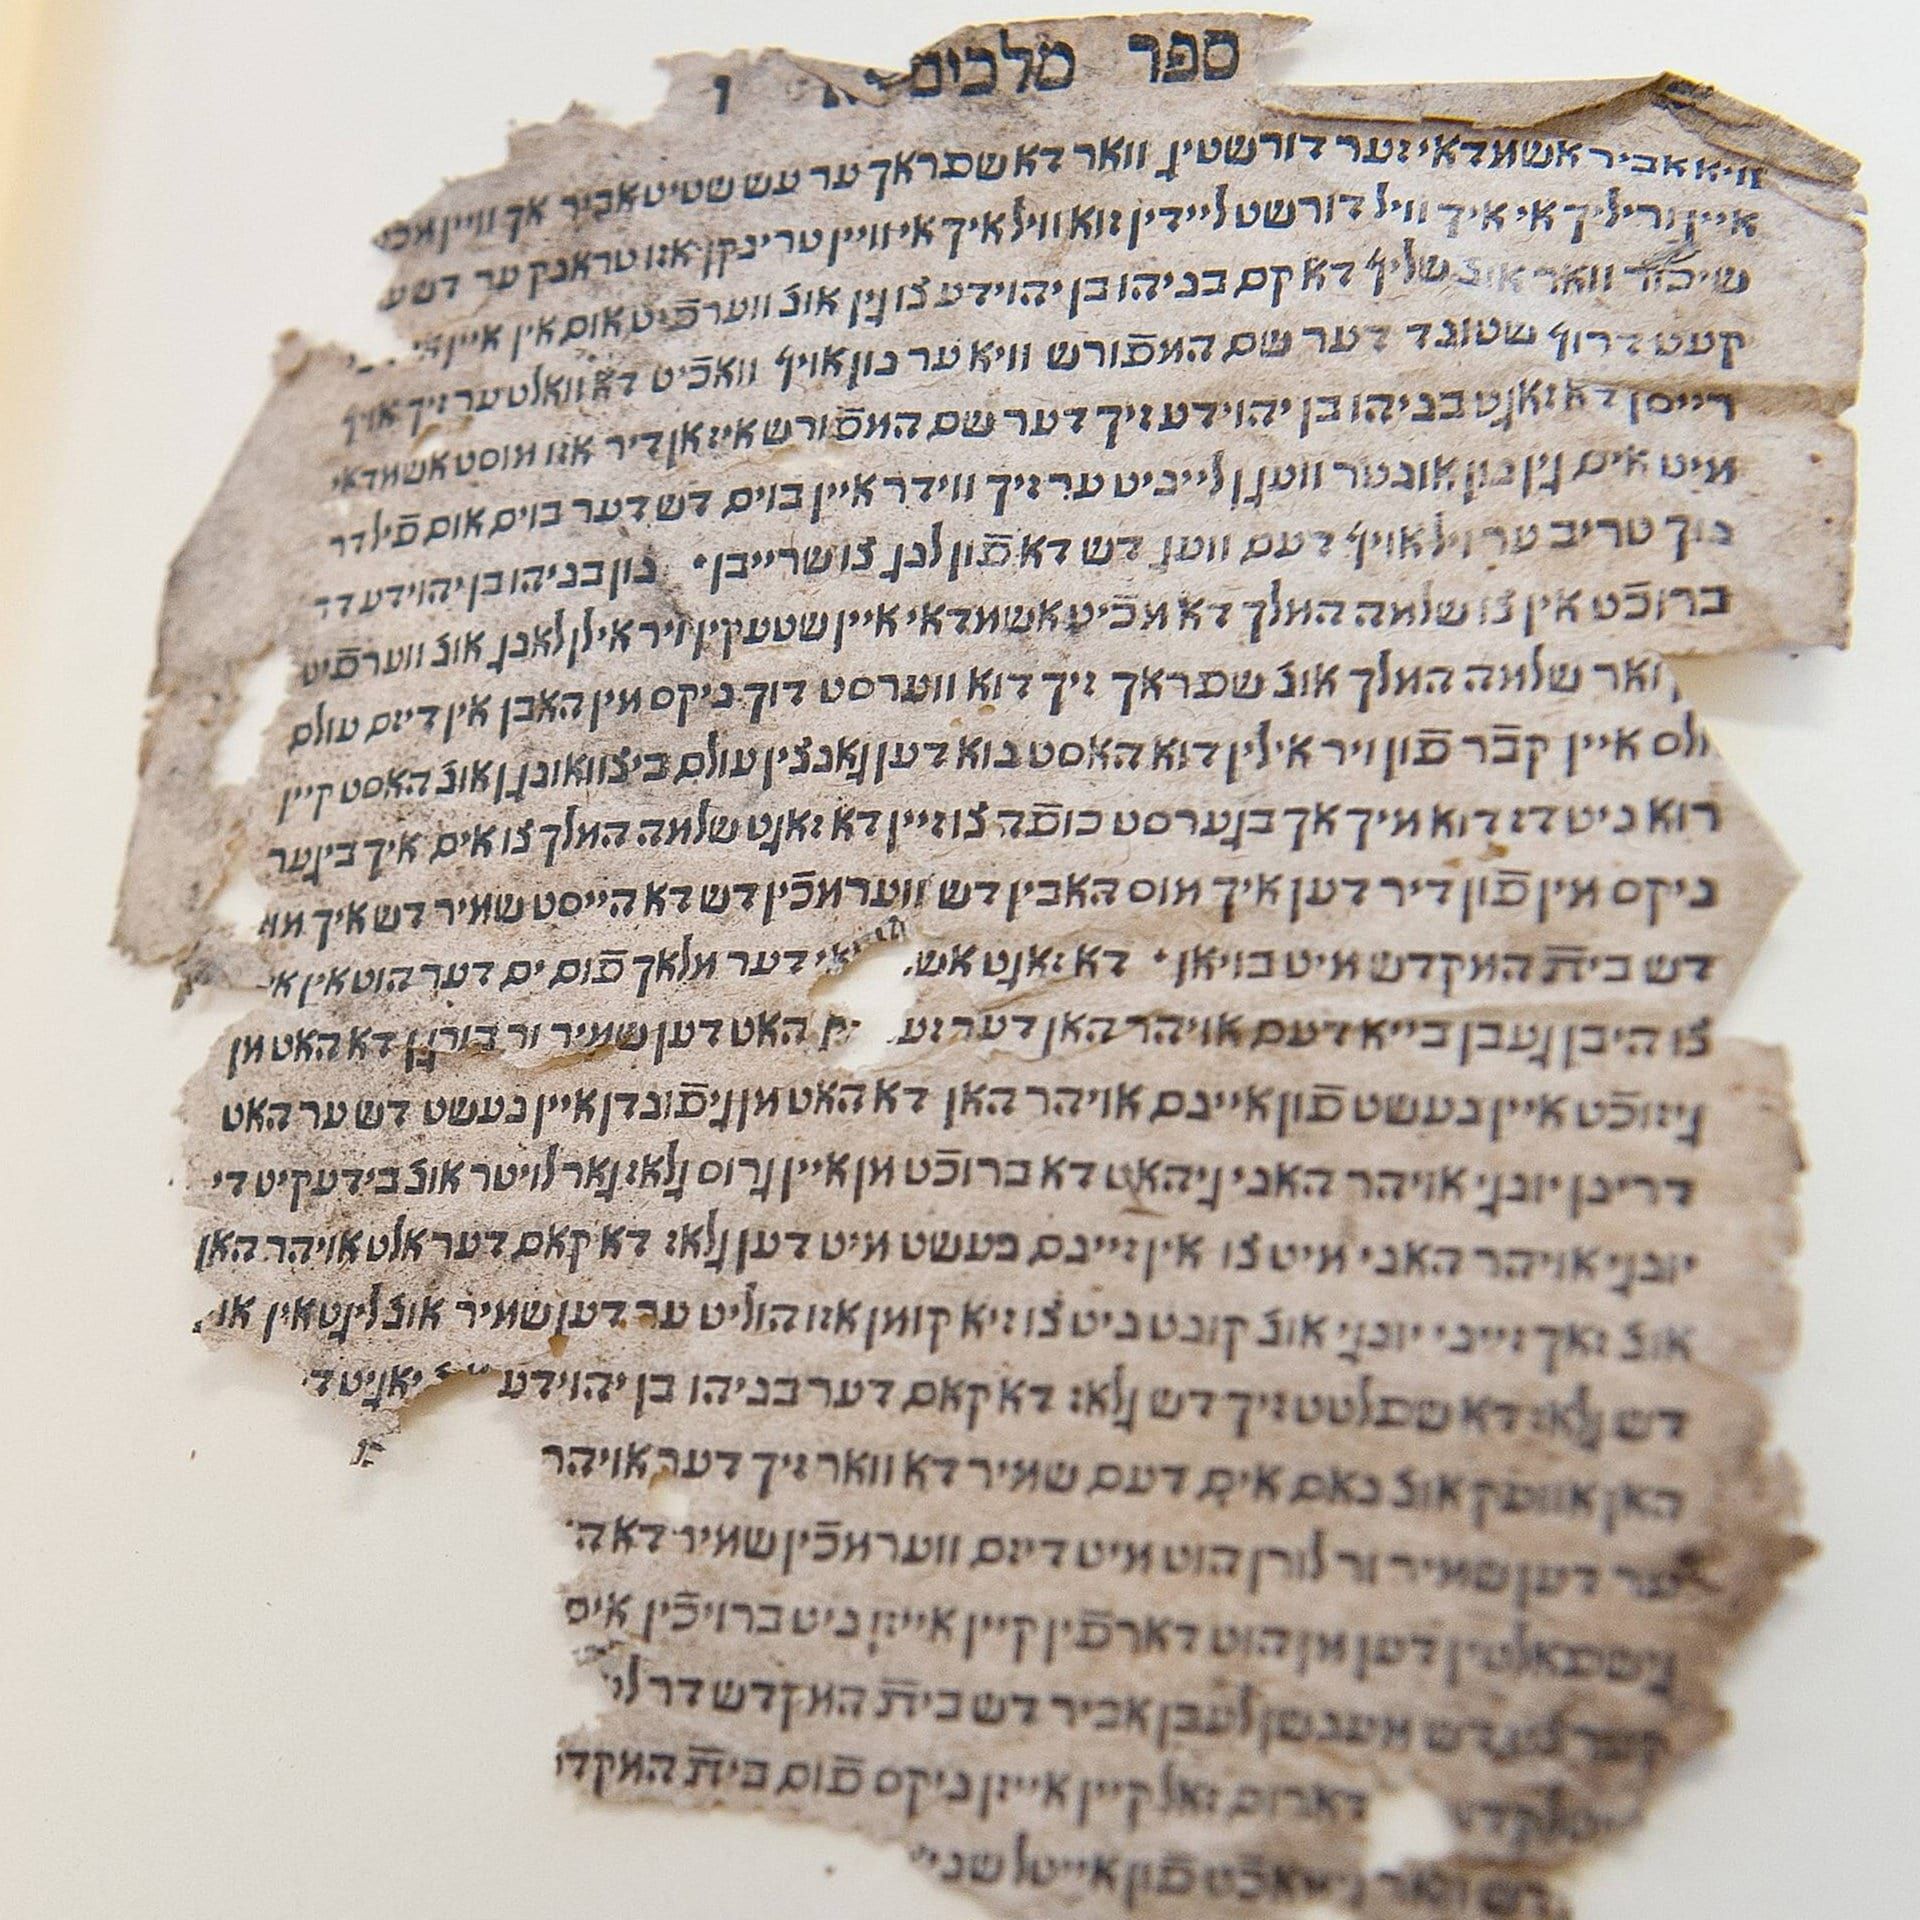 ספר מלכים
וויא אביר אשמדאי זער דורשטיג וואר דא שפראך ער עש שטיט אביר אך וויין
איין וריליך אי איך וויל דורשט ליידין זוא וויל איך אי וויין טרינקן אזו טראנק ער דש ער
שיכור וואר אונ' שליף דא קם בניהו בן יהוידע צו גין אונ' ווערפֿיט אום אין איין
קעט דרוף שטונד דער שם המפֿורש וויא ער נון אויף וואכֿיט דא וואלט ער זיך אויף
רייסן דא זאגט בניהו בן יהוידע זיך דער שם המפֿורש איז אן דיר אזו מוסט אשמדאי
מיט אים גין נון אונטר וועגן לייניט ער זיך ווידר איין בוים דש דער בוים אום פֿיל דר
נוך טריב ער ויל אויף דעם וועג דש דא פֿון לנג צו שרייבן• נון בניהו בן יהוידע דר
ברוכֿט אין צו שלמה המלך דא מכֿיט אשמדאי איין שטעקין ויר אילן לאנג אונ' ווערפֿיט
ואר שלמה המלך אונ' שפראך זיך דוא ווערסט דוך ניקס מין האבן אין דיזם עולם
אלס איין קבֿר פֿון ויר אילין דוא האסט נוא דען גאנצין עולם ביצוואונגן אונ' האסט קיין
רוא ניט דז דוא מיך אך בגערסט כופֿה צו זיין דא זאגט שלמה המלך צו אים איך ביגער
ניקס מין פֿון דיר דען איך מוס האבין דש ווערמכֿין דש דא הייסט שמיר דש איך
דש בית המקדש מיט בויאן• דא זאגט דער מלאך פֿום ים דער הוט אין
צו היבן געבן בייא דעם אויהר האן דער האט דען שמיר ור בורגן דא האט מן
גיזוכֿט איין נעשט פֿון איינם אויהר האן דא האט מן גיפֿונדן איין נעשט דש ער האט
דרינן יונגי אויהר האני גיהאט דא ברוכֿט מן איין גרוס גלאז גאר לויטר אונ' בידעקיט די
יונגי אויהר האני מיט צו אין זיינם נעשט מיט דען גלאז דא קאם דער אלט אויהר האן
אונ' זאך זייני יונגי אונ' קונט ניט צו זיא קומן אזו הוליט ער דען שמיר אונ' ליגט אין
דש גלאז דא שפלטט זיך דש גלאז דא קאם דער בניהו בן יהוידע
האן אוועק אונ' נאם אים דעם שמיר דא וואר זיך דער אויהר
ער דען שמיר ור לורן הוט מיט דיזם ווערמכֿין שמיר
גישפאלטין דען מן הוט דארפֿין קיין אייזן ניט ברויכֿין
דש מענשן לעבן אביר דש בית המקדש דר
דארום זאל קיין אייזן ניקס פֿום בית המקדש
דש וואר פֿון אייטל